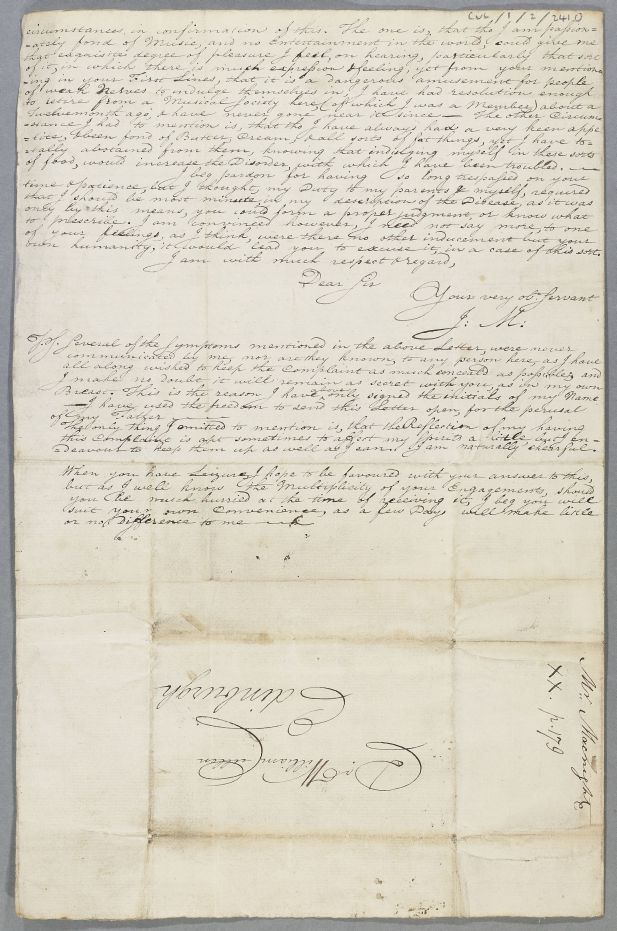 CUL/1/2/2410
circumstances, in confirmation of this. The one is, that tho' I am passion-
-ately fond of Music, and no Entertainment in the world, could give me
that exquisite degree of pleasure I feel, on hearing, particularly that sort
of it, in which there is much expression & feeling, yet from your mention-
-ing in your First Lines, that it is a dangerous amusement for people
of weak Nerves to indulge themselves in, I have had resolution enough
to retire from a Musical Society here (of which I was a Member) about a
Twelvemonth ago, & have never gone near it since — The other Circum-
-stance I had to mention is, that tho' I have always had, a very keen appe-
-tite, & been fond of Butter, Cream, & all sorts of fat things, yet I have to-
-tally abstained from them, knowing that indulging myself in these sorts
of food, would increase the Disorder, with which I have been troubled. —
I beg pardon for having so long trespassed on your
time & patience, but I thought, my Duty to my parents & myself, required
that I should be most minute, in my description of the Disease, as it was
only by this means, you could form a proper judgment, or know what
to prescribe. I am convinced however, I need not say more, to one
of your feelings, as I think, were there no other inducement but your
own humanity, it would lead you to excuse it, in a case of this sort.
I am with much respect & regard,
Dear Sir
Your very obt. Servant
J: M:
P.S. Several of the Symptoms mentioned in the above Letter, were never
communicated by me, nor are they known, to any person here, as I have
all along wished to keep the Complaint as much conceal'd as possible, and
I make no doubt, it will remain as secret with you, as in my own
Breast. This is the reason I have above only signed the initials of my Name
— I have used the freedom to send this Letter open, for the perusal
of my Father —
The only thing I omitted to mention is, that the Reflection of my having
this Complaint is apt sometimes to affect my Spirits a little but I en-
deavour to keep them up as well as I can. I am naturally chearful.
When you have Leizure, I hope to be favoured with your answer to this,
but as I well know the Multiplicity of your Engagements, should
you be much hurried at the time of receiving it, I beg you will
suit your own Convenience, as a few Days will make little
or no Difference to me —
Mr. Macnight
XX. p. 179
Dr. William Cullen
Edinburgh